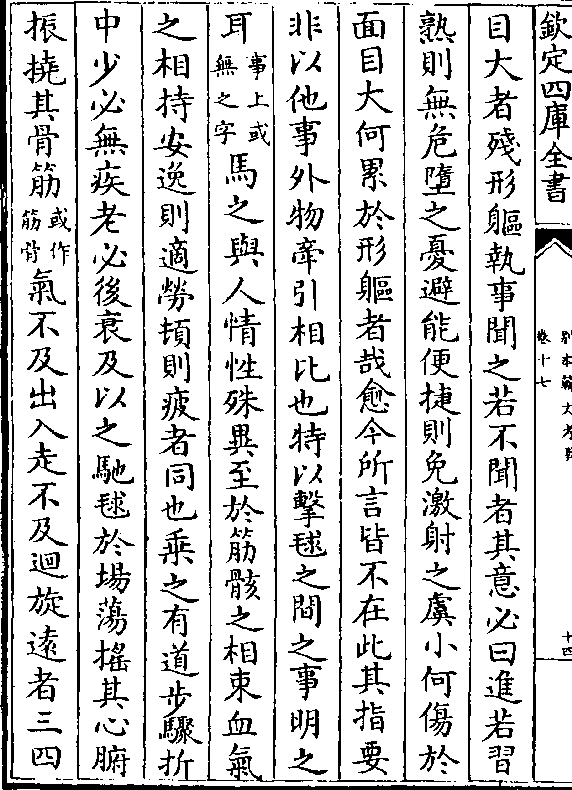 欽定四庫全書
卷十七
十四
目大者殘形軀執事聞之若不聞者其意必曰進若習
熟則無危墮之憂避能便捷則免激射之虞小何傷於
面目大何累於形軀者哉愈今所言皆不在此其指要
非以他事外物牽引相比也特以擊毬之間之事明之
耳事上或無之字馬之與人情性殊異至於筋骸之相束血氣
之相持安逸則適勞頓則疲者同也乘之有道步驟折
中少必無疾老必後衰及以之馳毬於場蕩搖其心腑
振撓其骨筋或作筋骨氣不及出入走不及迴旋遠者三四